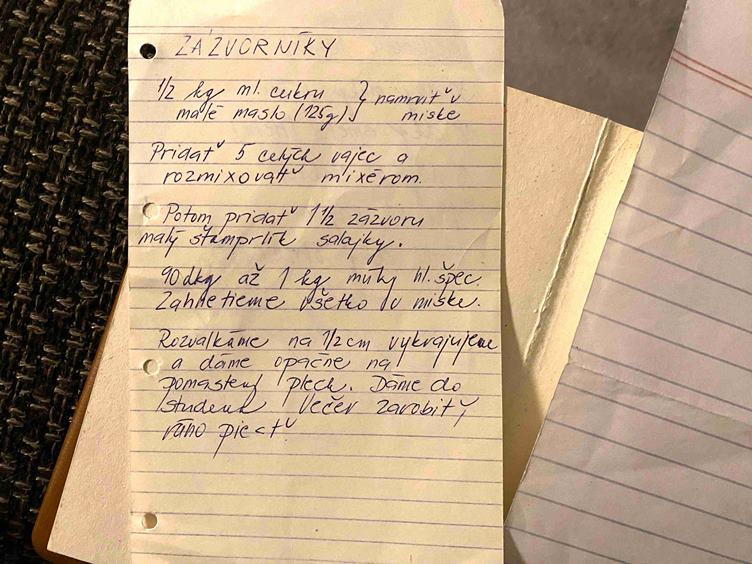 ZÁZVORNÍKY
1/2 kg ml. cukru } namrviť v
malé maslo (125g) miske
Pridať 5 celých vajec a
rozmixovať mixérom.
Potom pridať 1 1/2 zázvoru
malý štamprlík salajky.
90 dkg až 1 kg múky hl. špec.
Zahnetieme všetko v miske.
Rozvalkáme na 1/2 cm vykrajujeme
a dáme opačne na
pomastený plech. Dáme do
studena Večer zarobiť,
ráno piecť